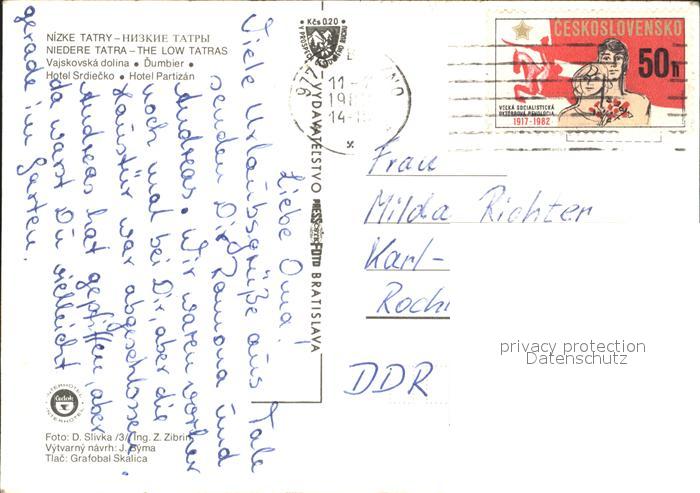 NÍZKE TATRY – НИЗКИЕ ТАТРЫ
NIEDERE TATRA – THE LOW TATRAS
Vajskovská dolina • Ďumbier •
Hotel Srdiečko • Hotel Partizán
Liebe Oma!
Viele Urlaubsgrüße aus Tale
senden Dir Ramona und
Andreas. Wir waren vorher
noch mal bei Dir, aber die
Haustür war abgeschlossen.
Andreas hat gepfiffen, aber
da warst Du vielleicht
gerade im Garten.
Kčs 0.20
VYDAVATEĽSTVO PRESSFOTO BRATISLAVA
ČESKOSLOVENSKO
50h
VEĽKÁ SOCIALISTICKÁ
OKTÓBROVÁ REVOLÚCIA
1917-1982
Frau
Milda Richter
Karl-
Roch
DDR
privacy protection
Datenschutz
INTERHOTEL
Čedok
INTERHOTEL
Foto: D. Slivka /3/, Ing. Z. Zibrín
Výtvarný návrh: J. Byma
Tlač: Grafobal Skalica